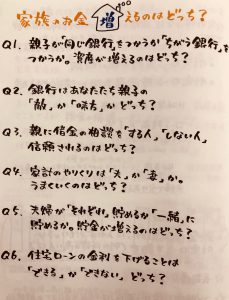 家族のお金増えるのはどっち？
Q1. 親子が「同じ銀行」をつかうか「ちがう銀行」を
つかうか。資産が増えるのはどっち？
Q2. 銀行はあなたたち親子の
「敵」か「味方」かどっち？
Q3. 親に借金の相談を「する人」「しない人」
信頼されるのはどっち？
Q4. 家計のやりくりは「夫」か「妻」か。
うまくいくのはどっち？
Q5. 夫婦が「それぞれ」貯めるか「一緒」に
貯めるか。貯金が増えるのはどっち？
Q6. 住宅ローンの金利を下げることは
「できる」か「できない」どっち？